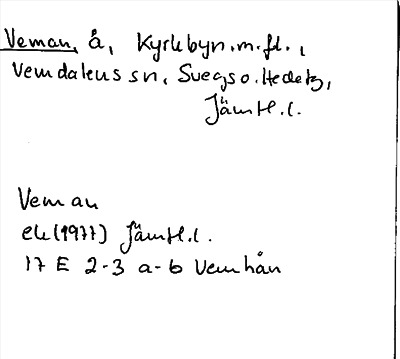 Veman, å, Kyrkbyn.m.fl.,
Vemdalens sn, Svegs o. Hedetg,
Jämtl.l.
Veman
ek (1977) Jämtl.l.
17 E 2-3 a-b Vemhån